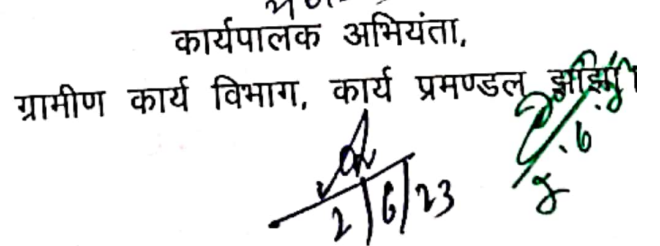 कार्यपालक अभियंता,
ग्रामीण कार्य विभाग, कार्य प्रमण्डल झाझा।
2/6/23